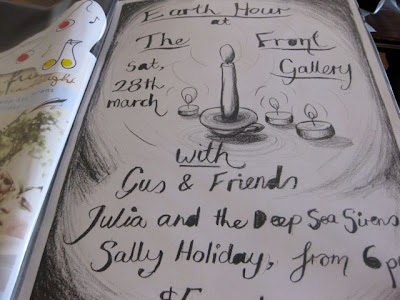 Earth Hour
at
The Front
Sat, Gallery
28th
march
with
Gus & Friends
Julia and the Deep Sea Sirens
Sally Holiday, from 6p
$5